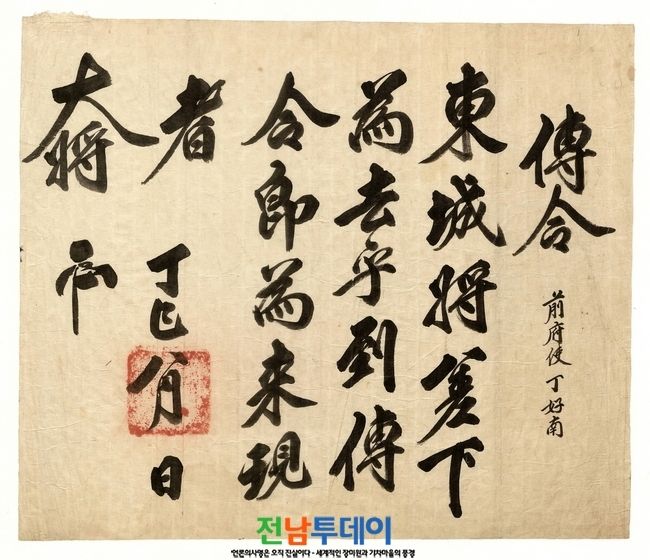 傳令
前府使丁好南
東城將差下
為去乎到傳
令卽為来現
者
丁巳八月 日
大將
전남투데이
언론의사명은 오직 진실이다 - 세계적인 장미원과 기차마을의 풍경